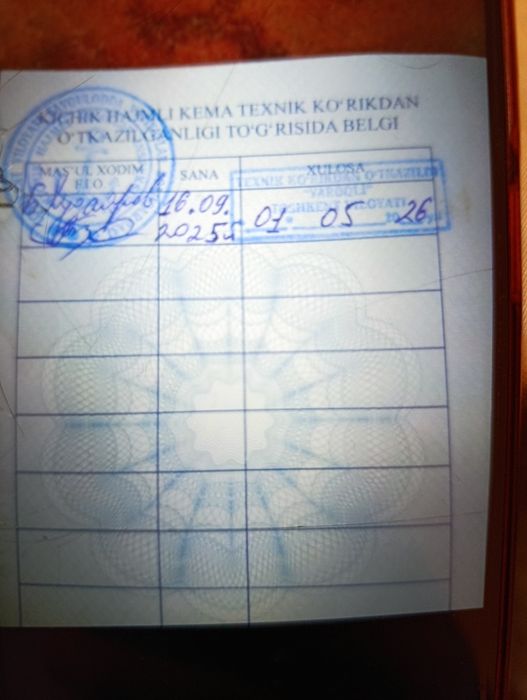 KICHIK HAJMLI KEMA TEXNIK KO‘RIKDAN
O‘TKAZILGANLIGI TO‘G‘RISIDA BELGI
MAS'UL XODIM
F.I.O
SANA
XULOSA
16.09.
2025
TEXNIK KO‘RIKDAN O‘TKAZILDI
"YAROQLI"
TOSHKENT VILOYATI
01 05 26